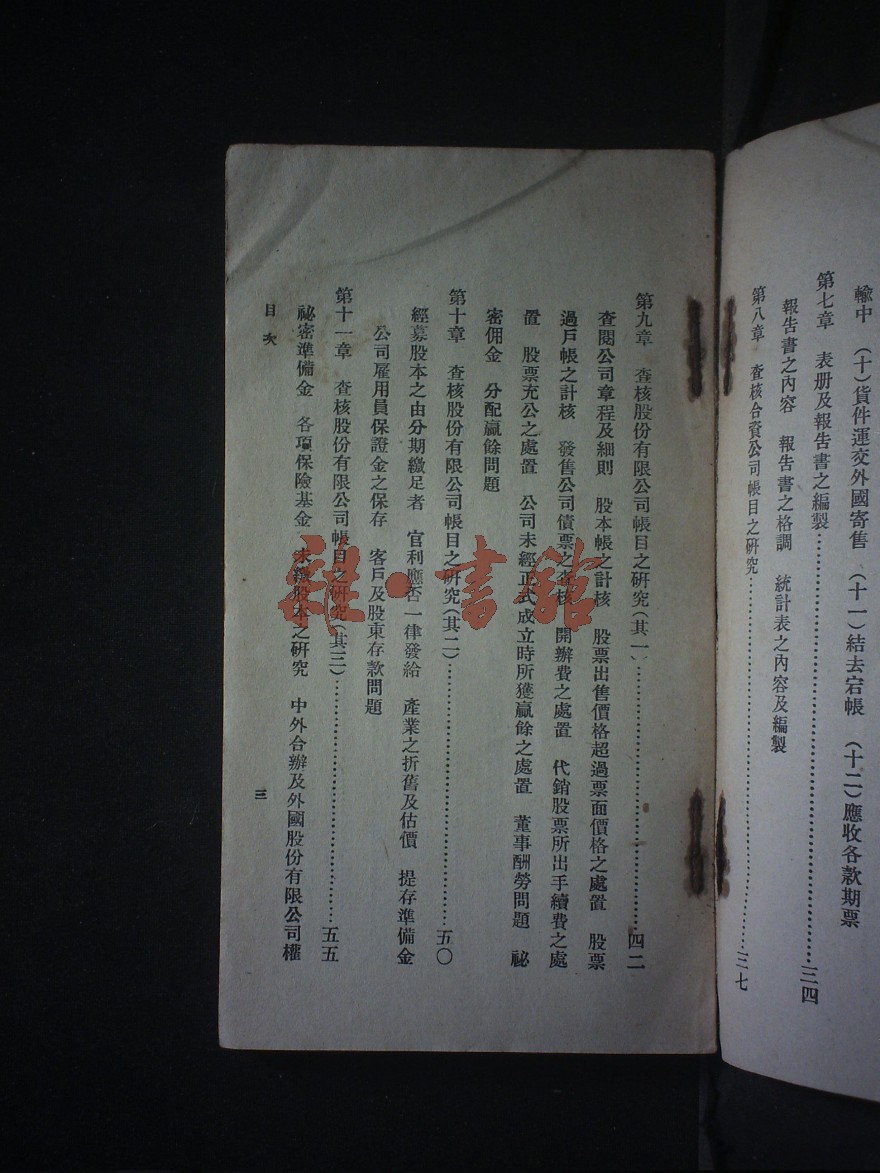 輸中　（十）貨件運交外國寄售　（十一）結去宕帳　（十二）應收各款期票
第七章　表册及報告書之編製……………………………三四
報告書之內容　報告書之格調　統計表之內容及編製
第八章　查核合資公司帳目之研究……………………………三七
第九章　查核股份有限公司帳目之研究（其一）……………………………四二
查閱公司章程及細則　股本帳之計核　股票出售價格超過票面價格之處置　股票
過戶帳之計核　發售公司債票之查核　開辦費之處置　代銷股票所出手續費之處
置　股票充公之處置　公司未經正式成立時所獲贏餘之處置　董事酬勞問題　祕
密佣金　分配贏餘問題
第十章　查核股份有限公司帳目之研究（其二）……………………………五〇
經募股本之由分期繳足者　官利應否一律發給　產業之折舊及估價　提存準備金
公司雇用員保證金之保存　客戶及股東存款問題
第十一章　查核股份有限公司帳目之研究（其三）……………………………五五
祕密準備金　各項保險基金　未繳股本之研究　中外合辦及外國股份有限公司權
目次
三
雜·書館